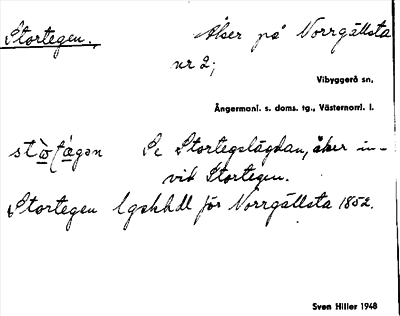 Stortegen., Åker på Norrgällsta
nr 2;
Vibyggerå sn.
Ångermanl. s. doms. tg., Västernorrl. l.
Se Stortegslägdan, åker in-
vid Stortegen.
Stortegen lgskhdl för Norrgällsta 1852.
Sven Hiller 1948